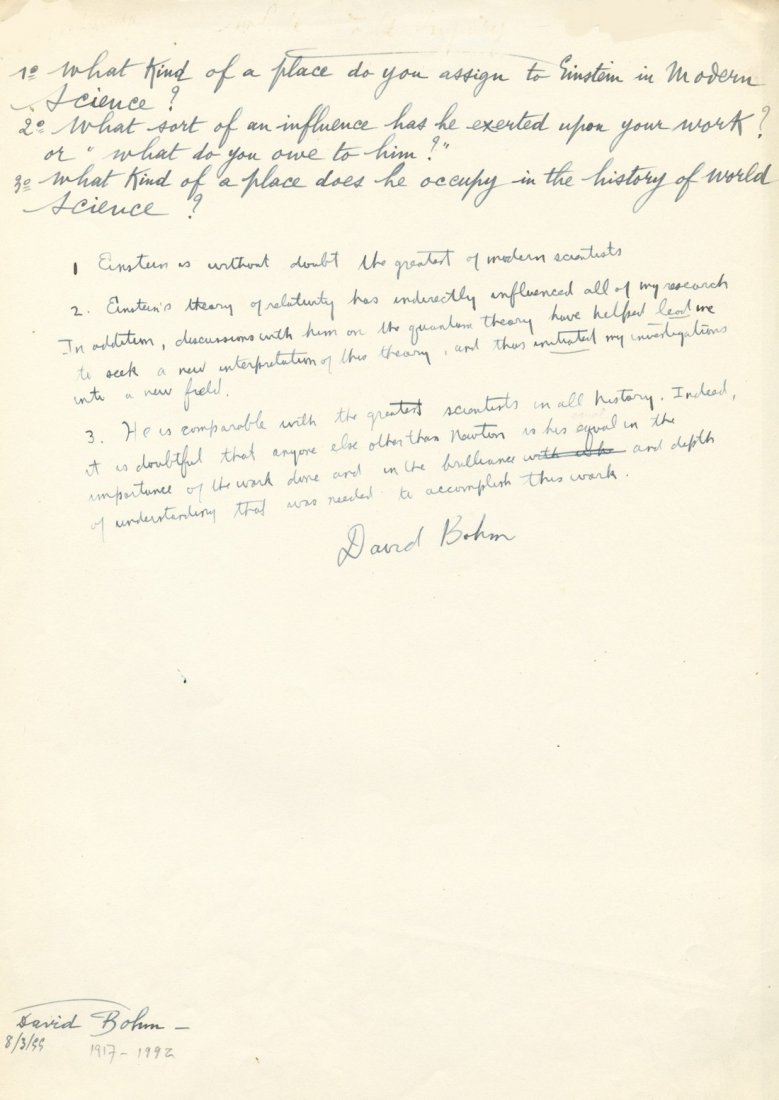 1º What Kind of a place do you assign to Einstein in Modern
Science?
2º What sort of an influence has he exerted upon your work?
or "what do you owe to him?"
3º What Kind of a place does he occupy in the history of world
Science?
1 Einstein is without doubt the greatest of modern scientists
2. Einstein's theory of relativity has indirectly influenced all of my research
In addition, discussions with him on the quantum theory have helped lead me
to seek a new interpretation of this theory, and thus initiated my investigations
into a new field.
3. He is comparable with the greatest scientists in all history. Indeed,
it is doubtful that anyone else other than Newton is his equal in the
importance of the work done and in the brilliance and depth
of understanding that was needed to accomplish this work.
David Bohm
David Bohm –
8/3/55
1917 - 1992